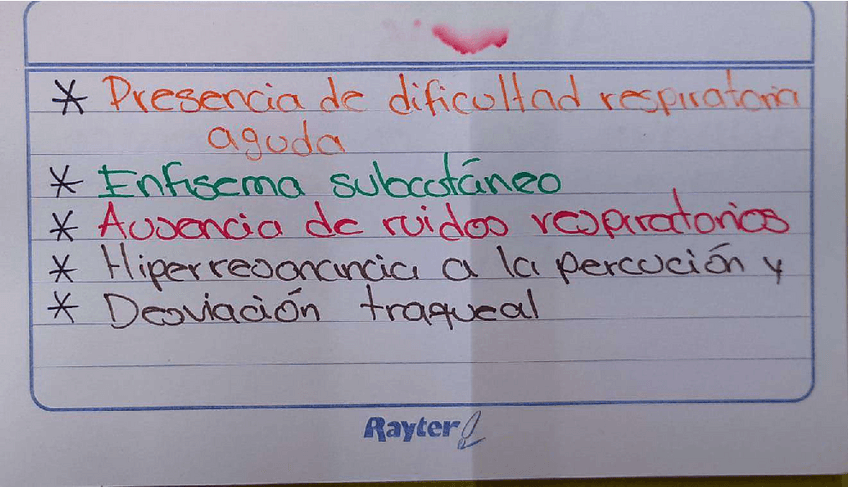 * Presencia de dificultad respiratoria
aguda
* Enfisema subcutáneo
* Ausencia de ruidos respiratorios
* Hiperresonancia a la percución y
* Desviación traqueal
Rayter